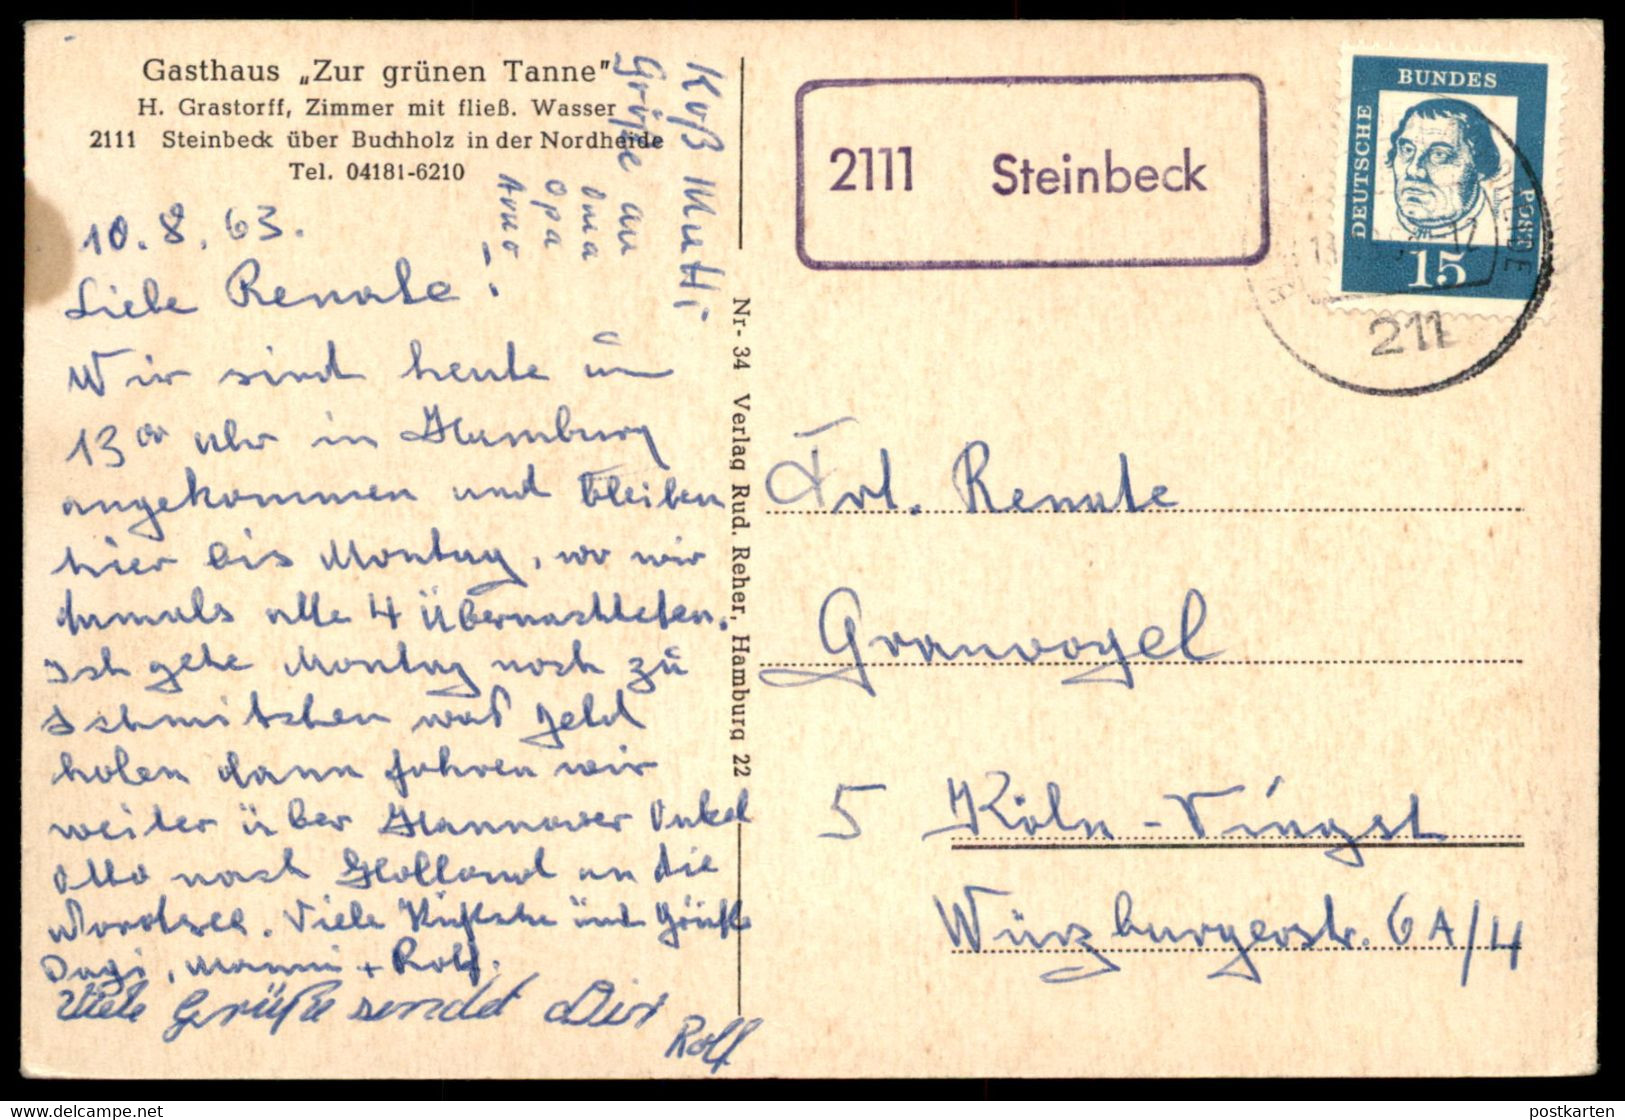 Gasthaus „Zur grünen Tanne"
H. Grastorff, Zimmer mit fließ. Wasser
2111 Steinbeck über Buchholz in der Nordheide
Tel. 04181-6210
10. 8. 63.
Liebe Renate!
Wir sind heute um
13 00 Uhr in Hamburg
angekommen und bleiben
hier bis Montag, wo wir
damals alle 4 übernachteten.
Ich gehe Montag noch zu
Schmitschen was Geld
holen dann fahren wir
weiter über Hannover Onkel
Otto nach Holland an die
Nordsee. Viele und Grüße
Dagi, Manni + Rolf.
Viele Grüße sendet Dir
Rolf
Kuß Mutti
Grüße an
Oma
Opa
Arno
Nr- 34 Verlag Rud. Reher, Hamburg 22
2111 Steinbeck
DEUTSCHE
BUNDES
POST
15
211
Frl. Renate
Granvogel
5 Köln-Vingst
Würzburgerstr. 6A/4
postkarten